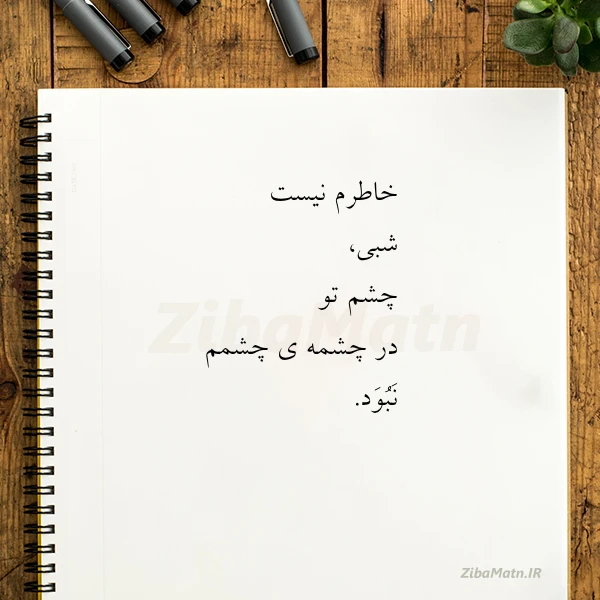 خاطرم نیست
شبی،
چشم تو
در چشمه ی چشمم
نَبُوَد.
ZibaMatn
ZibaMatn.IR